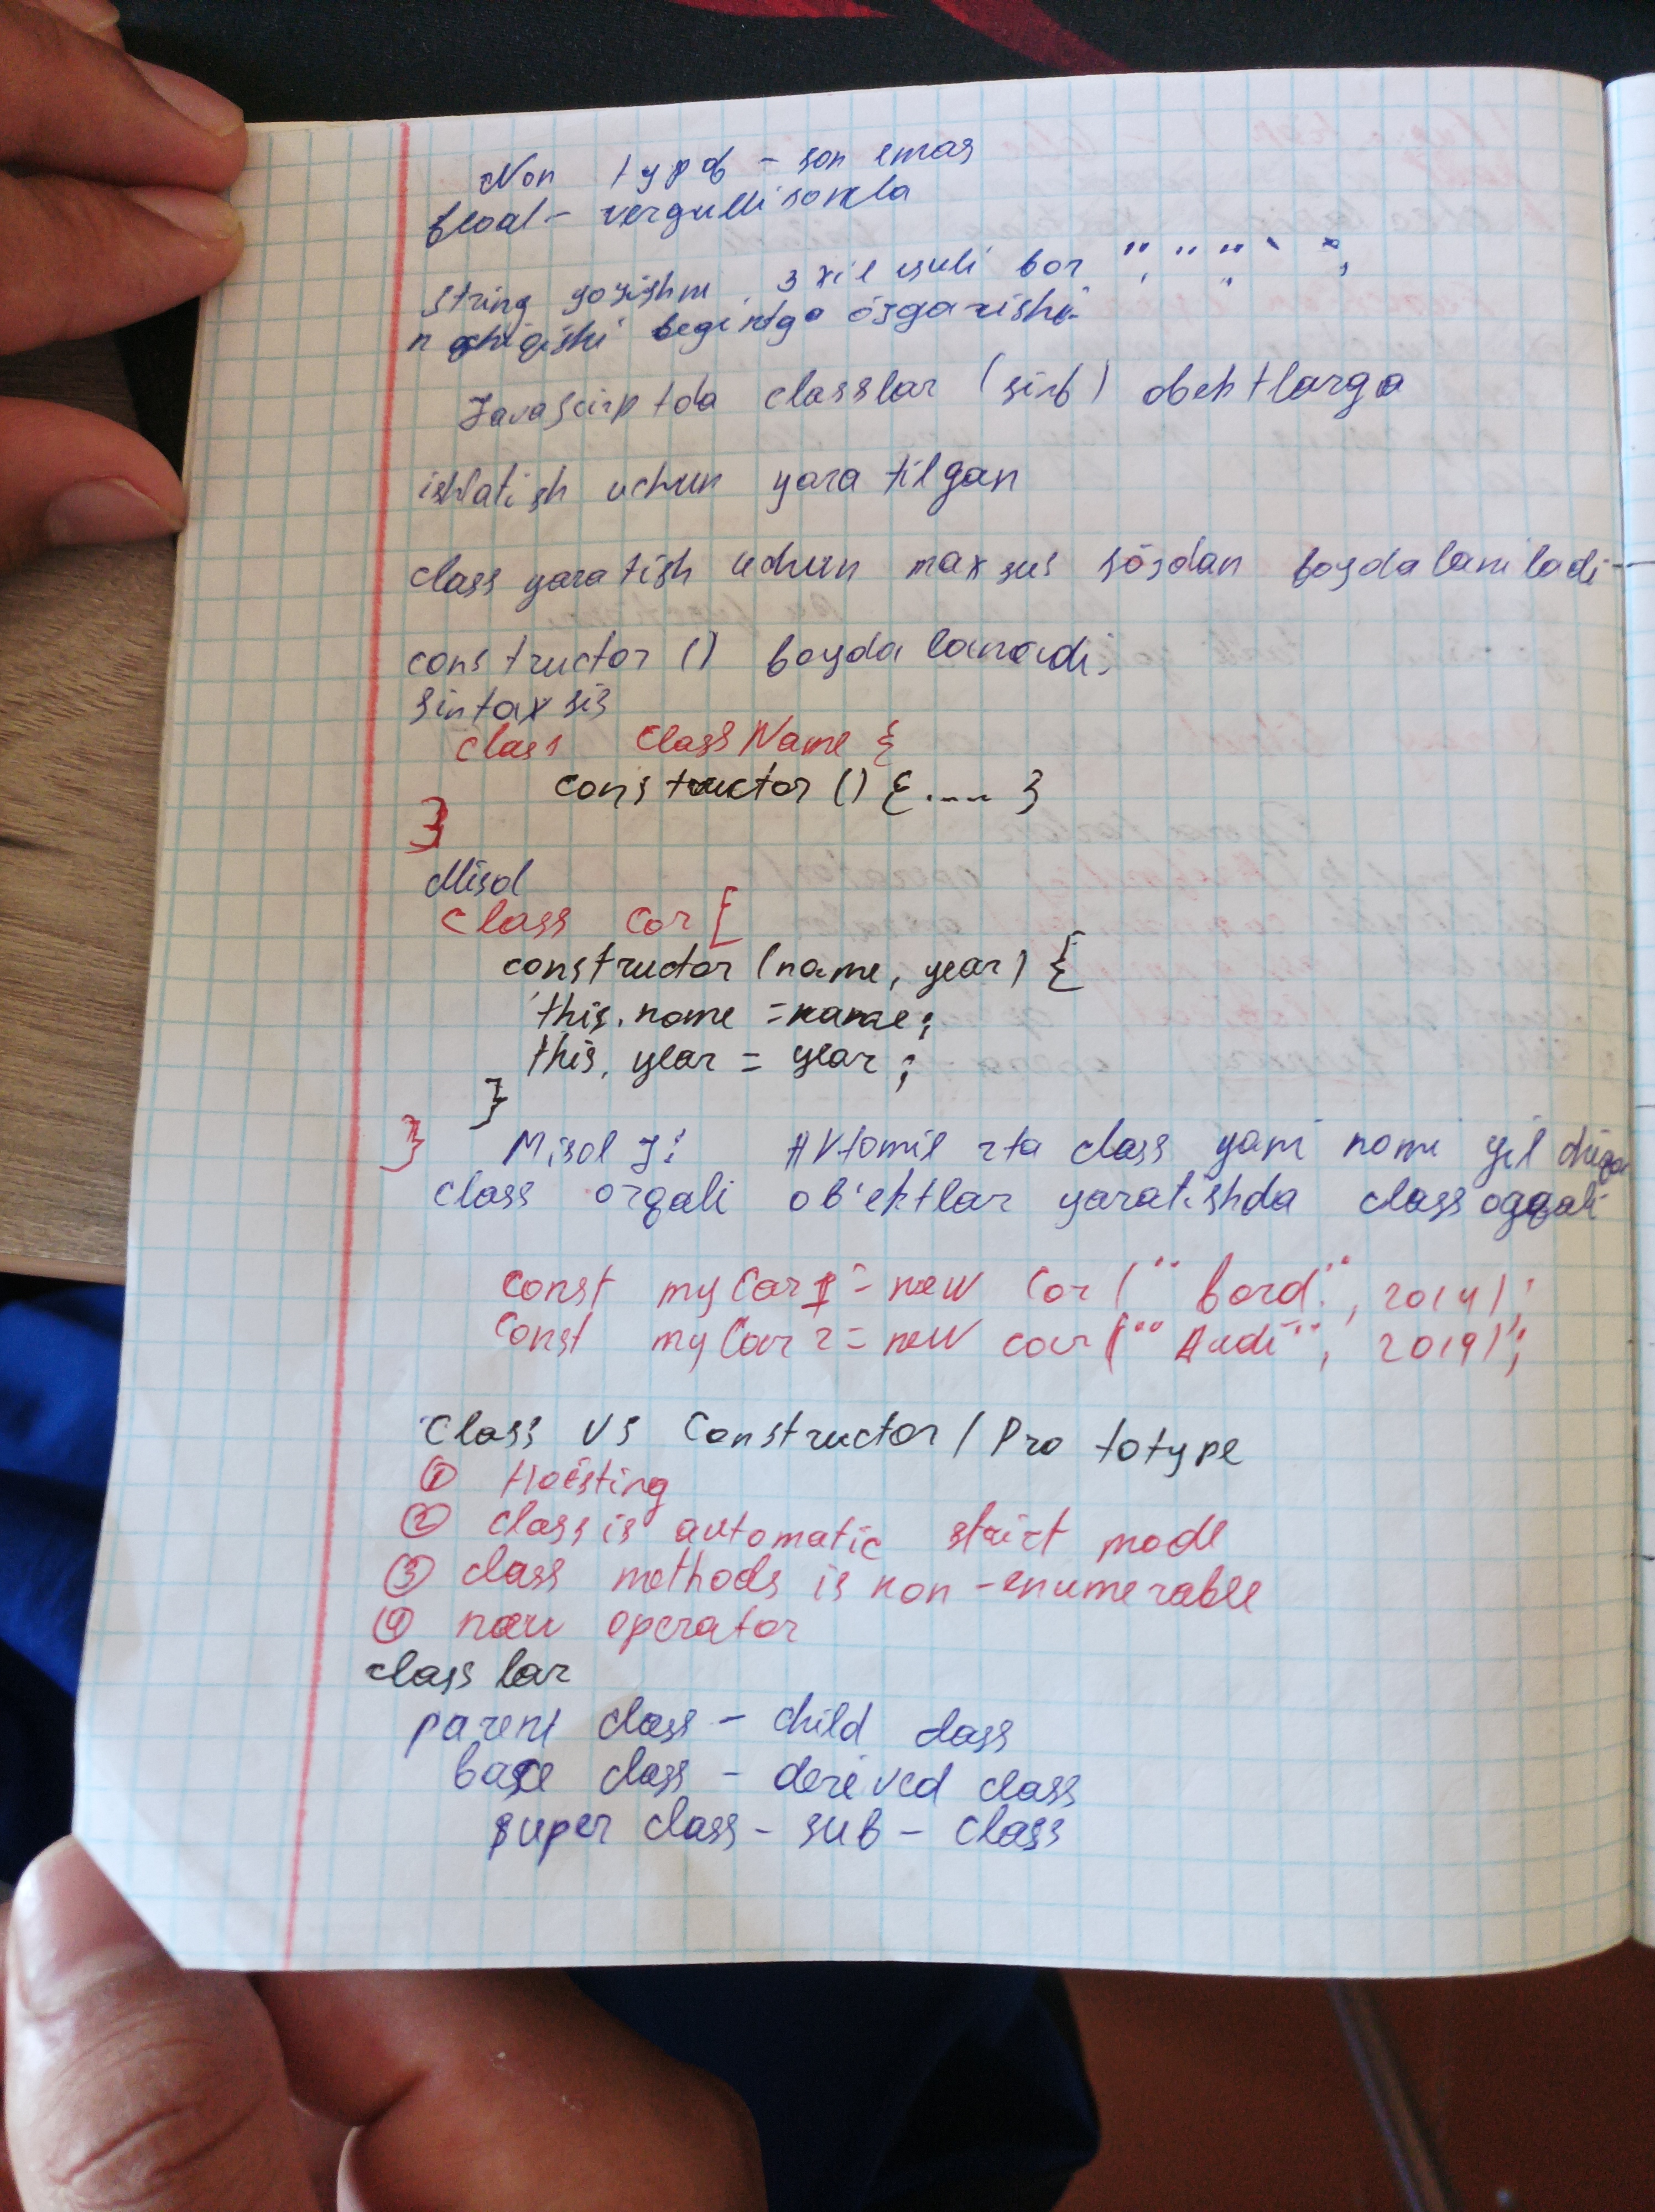 Non typof - son emas
float - vergulli sonla
String yozishni 3 xil usuli bor " " " " ` `;
n chiqishi keginga o'zgarishi
Javascirptda classlar (sinf) obektlarga
ishlatish uchun yaratilgan
class yaratish uchun maxsus sõzdan foydalaniladi-
constructor () foydalanadi;
sintaxsis
class ClassName {
constructor () { .... }
}
Misol
class Car {
constructor (name, year) {
this.name = name;
this.year = year;
}
} Misol J: AVtomil 2ta class yani nomi yil chiqgan
class orqali ob'ektlar yaratishda class orqali
const myCar1 = new Car ("ford", 2014);
Const myCar2 = new car ("Audi", 2019);
Class VS Constructor / Prototype
① Hoisting
② class is automatic strict mode
③ class methods is non-enumerable
④ new operator
class lar
parent class - child class
base class - derived class
super class - sub - class